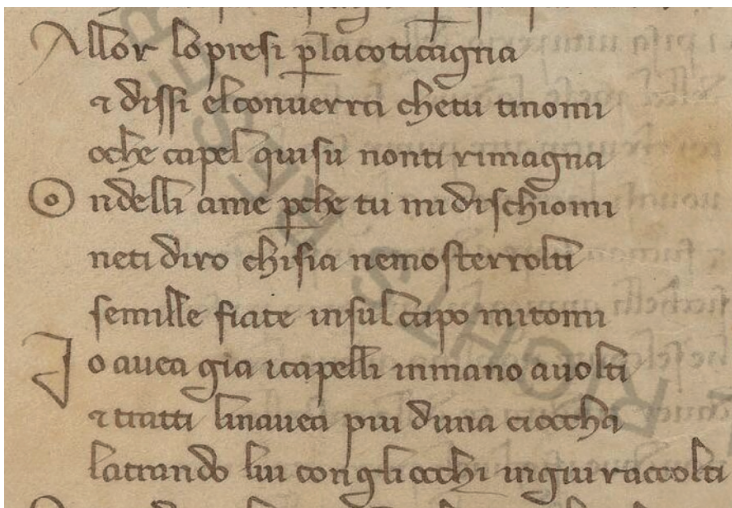 Allor lo presi p la coticagna
⁊ dissi el converra che tu ti nomi
o che capel qui su non ti rimagna
Ondelli a me pche tu mi dischiomi
ne ti diro chi sia ne mosterrolti
se mille fiate in sul capo mi tomi
Io avea gia i capelli in mano avolti
⁊ tratti linavea piu duna ciocha
latrando lui con gli occhi in gui raccolti